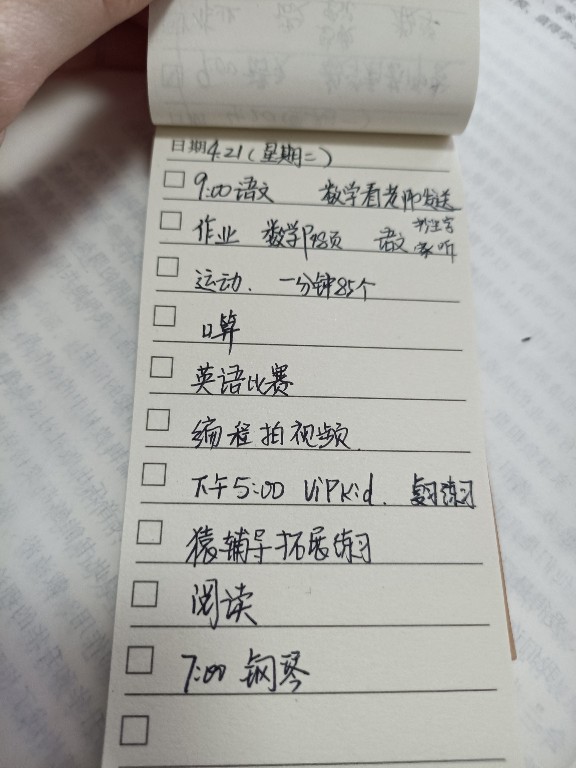 日期 4.21(星期二)
9:00 语文 数学看老师发送
作业 数学P93页 语文 家听
运动. 一分钟85个
口算
英语比赛
编程拍视频
下午5:00 VIPKid. 复习练习
猿辅导拓展练习
阅读
7:00 钢琴